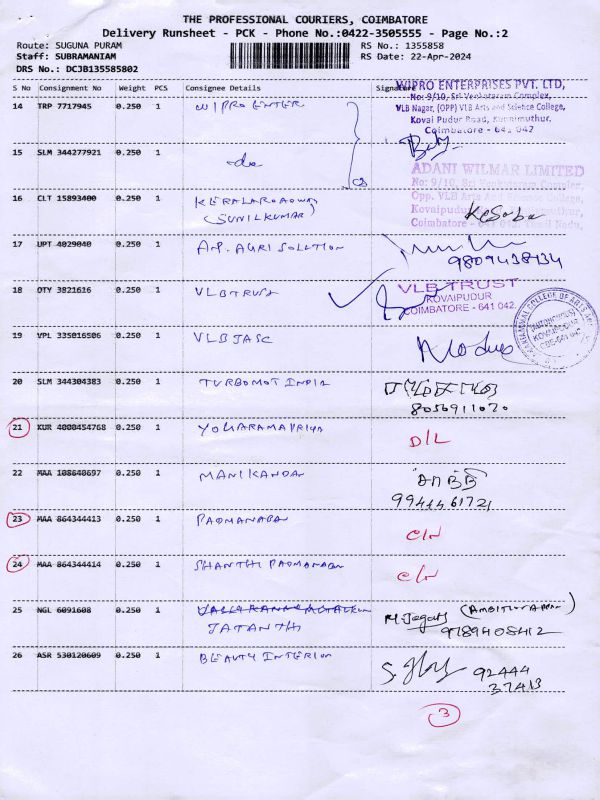 THE PROFESSIONAL COURIERS, COIMBATORE
Delivery Runsheet - PCK - Phone No.:0422-3505555 - Page No.:2
Route: SUGUNA PURAM RS No.: 1355858
Staff: SUBRAMANIAM RS Date: 22-Apr-2024
DRS No.: DCJB135585802
S No Consignment No Weight PCS Consignee Details Signature
WIPRO ENTERPRISES PVT. LTD,
No: 9/10, Sri Venkatram Complex,
VLB Nagar, (OPP) VLB Arts and Science College,
Kovai Pudur Road, Kuniamuthur,
Coimbatore - 641 042
14 TRP 7717945 0.250 1 WIPRO ENTER
15 SLM 344277921 0.250 1 -do-
ADANI WILMAR LIMITED
No: 9/10, Sri Venkatram Complex,
Opp. VLB Arts and Science College,
Kovaipudur
Coimbatore - 641 Tamil Nadu,
16 CLT 15893400 0.250 1 KERALAROADWAY
(SUNILKUMAR)
17 UPT 4029040 0.250 1 A.P. AGRI SOLUTION
9809438134
18 OTY 3821616 0.250 1 VLB TRUST
VLB TRUST
KOVAIPUDUR
COIMBATORE - 641 042.
19 VPL 335016506 0.250 1 VLBJASC
(AUTONOMOUS)
KOVAIPUDUR
CBE-641 042
20 SLM 344304383 0.250 1 TURBOMOT INDIA
8056911070
21 KUR 4000454768 0.250 1 YOGARAMAPRIYA D/L
22 MAA 108640697 0.250 1 MANIKANDAN
9944461721
23 MAA 864344413 0.250 1 PADMANABAN C/N
24 MAA 864344414 0.250 1 SHANTHI PADMANABAN C/N
25 NGL 6091608 0.250 1 JAYANTHI
M. Jagan
9789408412
26 ASR 530120609 0.250 1 BEAUTY INTERIOR
S. 92444
37413
3